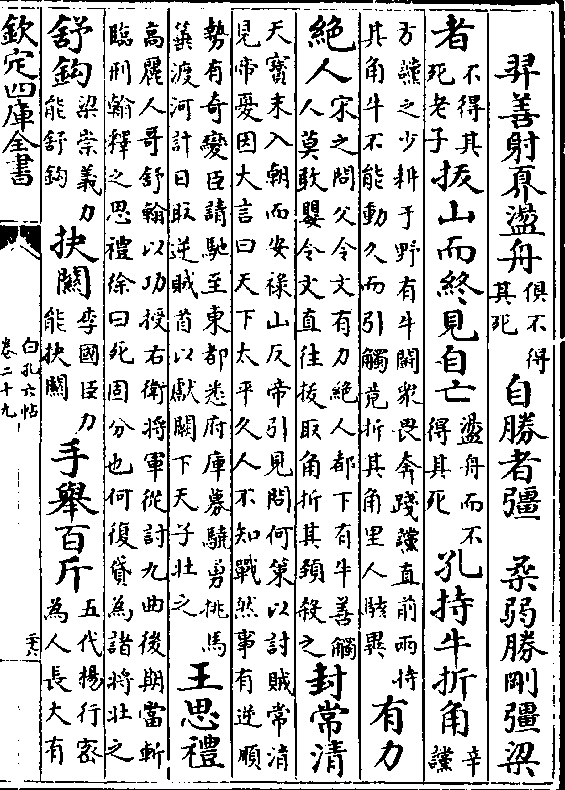 羿善射奡盪舟俱不得其死自勝者彊 柔弱勝剛彊梁
者不得其死老子拔山而終見自亡盪舟而不得其死孔持牛折角辛讜
方讜之少耕于野有牛鬭衆畏奔踐讜直前兩持
其角牛不能動久而引觸竟折其角里人駭異有力
絶人宋之問父令文有力絶人都下有牛善觸
人莫敢嬰令文直往拔取角折其頸殺之封常清
天寳末入朝而安禄山反帝引見問何策以討賊常清
見帝憂因大言曰天下太平久人不知戰然事有逆順
勢有奇變臣請馳至東都悉府庫募驍勇挑馬
箠渡河計日取逆賊首以獻闕下天子壯之王思禮
高麗人哥舒翰以功授右衛將軍從討九曲後期當斬
臨刑翰釋之思禮徐曰死固分也何復貸為諸將壯之
舒鈎梁崇義力能舒鈎抉關李國臣力能抉關手舉百斤五代楊行密為人長大有
欽定四庫全書
白孔六帖
卷二十九